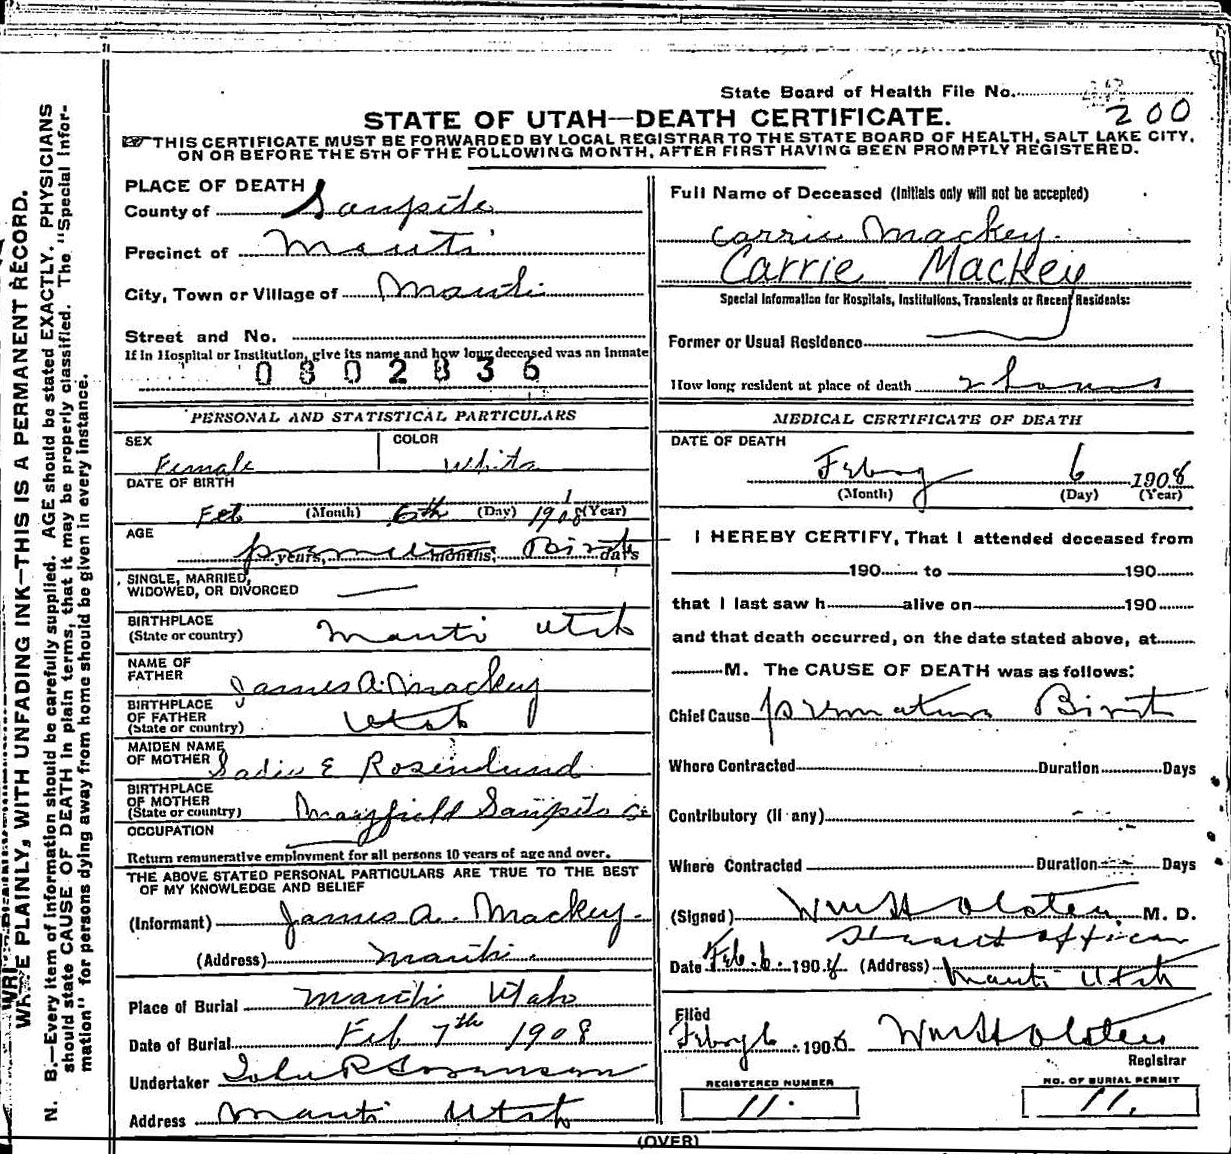 State Board of Health File No. 200
STATE OF UTAH—DEATH CERTIFICATE.
THIS CERTIFICATE MUST BE FORWARDED BY LOCAL REGISTRAR TO THE STATE BOARD OF HEALTH, SALT LAKE CITY,
ON OR BEFORE THE 5TH OF THE FOLLOWING MONTH, AFTER FIRST HAVING BEEN PROMPTLY REGISTERED.
WRITE PLAINLY, WITH UNFADING INK—THIS IS A PERMANENT RECORD.
N. B.—Every item of information should be carefully supplied. AGE should be stated EXACTLY. PHYSICIANS
should state CAUSE OF DEATH in plain terms, that it may be properly classified. The "Special Infor-
mation" for persons dying away from home should be given in every instance.
PLACE OF DEATH
County of Sanpete
Precinct of Manti
City, Town or Village of Manti
Street and No.
If in Hospital or Institution, give its name and how long deceased was an inmate
0802836
PERSONAL AND STATISTICAL PARTICULARS
SEX Female
COLOR White
DATE OF BIRTH
Feb (Month) 6th (Day) 1908 (Year)
AGE
years, months, Birth days
SINGLE, MARRIED,
WIDOWED, OR DIVORCED
BIRTHPLACE
(State or country) Manti Utah
NAME OF
FATHER James A. Mackey
BIRTHPLACE
OF FATHER
(State or country) Utah
MAIDEN NAME
OF MOTHER Sadie E Rosenlund
BIRTHPLACE
OF MOTHER
(State or country) Mayfield Sanpete Co
OCCUPATION
Return remunerative employment for all persons 10 years of age and over.
THE ABOVE STATED PERSONAL PARTICULARS ARE TRUE TO THE BEST
OF MY KNOWLEDGE AND BELIEF
(Informant) James A. Mackey.
(Address) Manti.
Place of Burial Manti Utah
Date of Burial Feb 7th 1908
Undertaker John R Sorenson
Address Manti Utah
Full Name of Deceased (Initials only will not be accepted)
Carrie Mackey.
Carrie Mackey
Special Information for Hospitals, Institutions, Transients or Recent Residents:
Former or Usual Residence
How long resident at place of death 2 hours
MEDICAL CERTIFICATE OF DEATH
DATE OF DEATH
Febry 6 1908
(Month) (Day) (Year)
I HEREBY CERTIFY, That I attended deceased from
190 to 190
that I last saw h alive on 190
and that death occurred, on the date stated above, at
M. The CAUSE OF DEATH was as follows:
Chief Cause premature Birth
Where Contracted Duration Days
Contributory (if any)
Where Contracted Duration Days
(Signed) Wm H Olsten M. D.
Health officer
Date Feb. 6. 1908 (Address) Manti Utah
Filed
Febry 6 1908 Wm H Olsten
Registrar
REGISTERED NUMBER
11.
NO. OF BURIAL PERMIT
11.
(OVER)